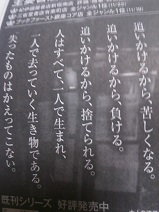 追いかけるから、苦しくなる。
追いかけるから、負ける。
追いかけるから、捨てられる。
人はすべて、一人で生まれ、
一人で去っていく生き物である。
失ったものはかえってこない。
既刊シリーズ 好評発売中